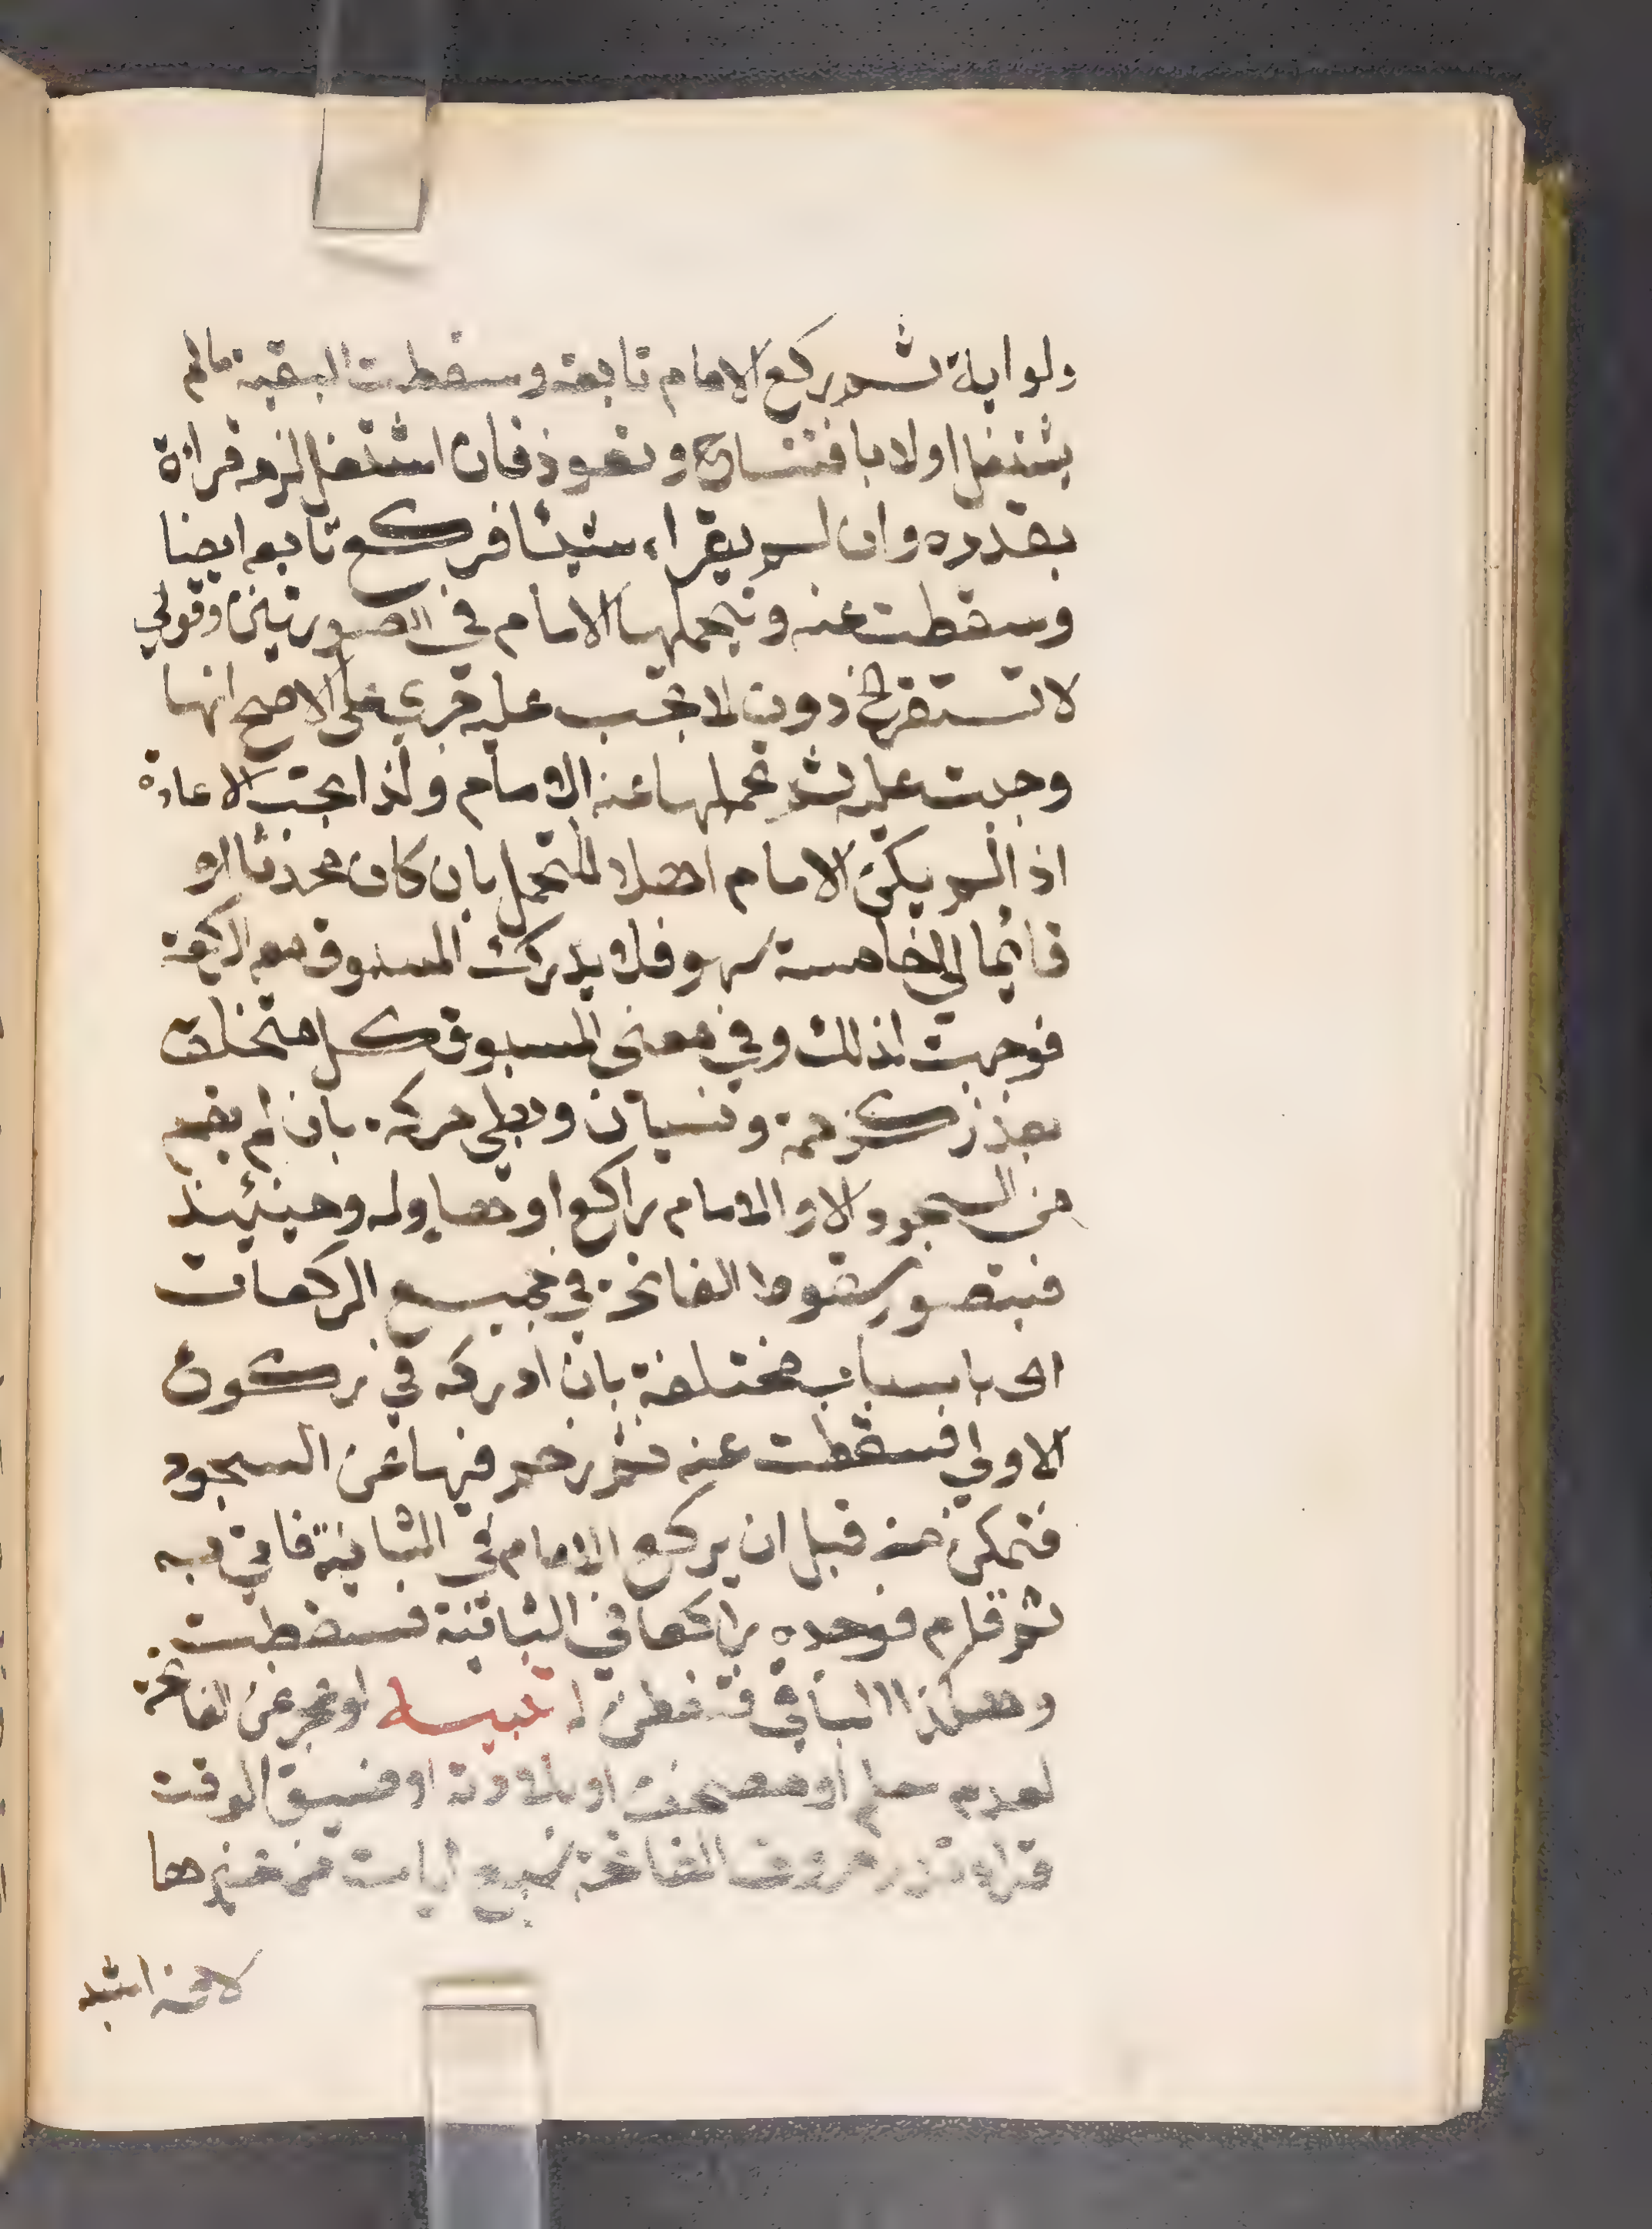 ولو اية ثم ركع الامام تابعه وسقطت البقية مالم
يشتغل اولا بافتتاح وتعوذ فان اشتغل لزمه قراة
بقدره وان لم يقراء شيئا فركع تابعه ايضا
وسقطت عنه ويحملها الامام في الصورتين وقولي
لا تستقر دون لا تجب عليه جري على الاصح انها
وجبت عليه ثم تحملها عنه الامام ولذا تجب الاعادة
اذا لم يكن الامام اهلا للتحمل بان كان محدثا او
قائما الي الخامسة سهو فلا يدرك المسبوق معه الركعة
فوجبت اذ ذاك وفي معنى المسبوق كل متخلف
بعذر كزحمة ونسيان وبطي حركة بان لم يقم
من السجود الا والامام راكع او هاوله وحينئيذ
فيتصور سقوط الفاتحة في جميع الركعات
اي باسباب مختلفة بان ادركه في ركوع
الاولي فسقطت عنه ثم زحم فيها عن السجود
فتمكن منه قبل ان يركع الامام في الثانية فاتي به
ثم قام فوجده راكعا في الثانية فسقطت
وهكذا الباقي فتفطن له تنبيه لو عجز عن الفاتحة
لعدم معلم او مصحف او بلادة او ضيق الوقت
قراء قدر حروف الفاتحة سبع ايات من غيرها